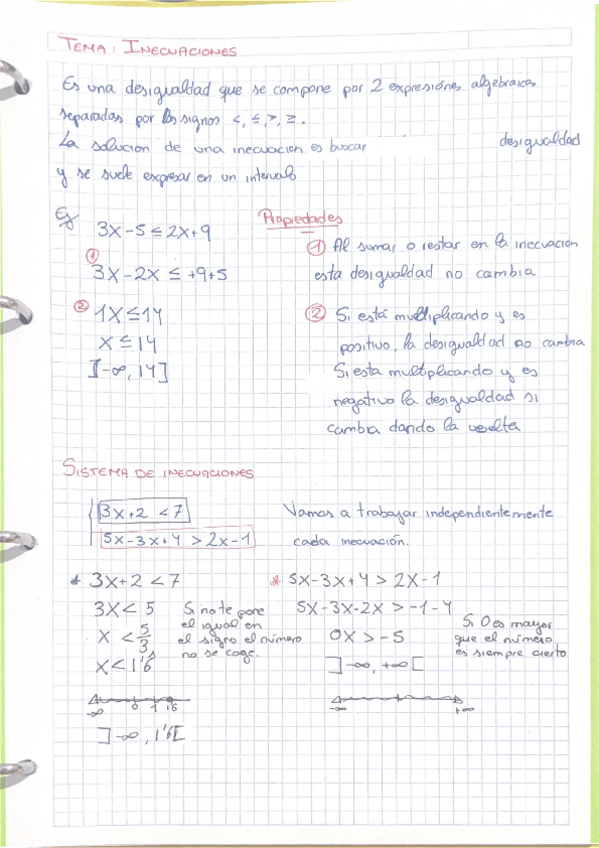 TEMA: INECUACIONES
Es una desigualdad que se compone por 2 expresiónes algebraicas
separadas por los signos <, ≤, >, ≥.
La solución de una inecuación es buscar desigualdad
y se suele expresar en un intervalo
Ej 3x-5 ≤ 2x+9
①
3x-2x ≤ +9+5
② 1x ≤ 14
x ≤ 14
]-∞, 14]
Propiedades
① Al sumar o restar en la inecuación
esta desigualdad no cambia
② Si está multiplicando y es
positivo, la desigualdad no cambia
Si esta multiplicando y es
negativo la desigualdad si
cambia dando la vuelta
SISTEMA DE INECUACIONES
3x+2 < 7
5x-3x+4 > 2x-1
Vamos a trabajar independientemente
cada inecuación.
* 3x+2 < 7
3x < 5
x < 5/3
x < 1'6
Si no te pone
el igual en
el signo el número
no se coge.
-∞ 0 1 1'6
]-∞, 1'6[
* 5x-3x+4 > 2x-1
5x-3x-2x > -1-4
0x > -5
]-∞, +∞[
Si 0 es mayor
que el número
es siempre cierto
-∞ +∞